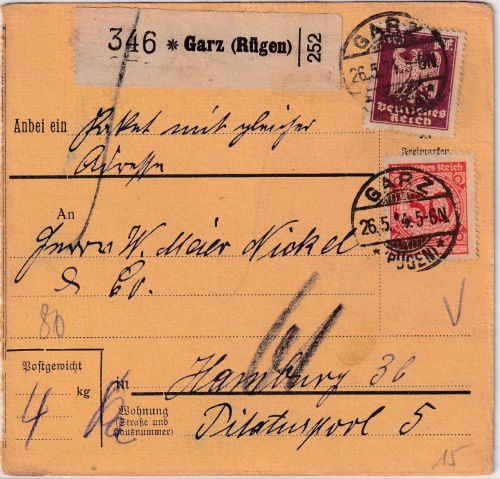 346 * Garz (Rügen) 252
GARZ
26.5. *4.5-6N
Deutsches
Reich
Anbei ein Paket mit gleicher
Adresse
Freimarken
Deutsches Reich
GARZ
26.5. *4.5-6N
* (RÜGEN) *
An
Herrn W. Maier Nickel
& Co.
80
Postgewicht
4 kg
in Hamburg 36
Wohnung
(Straße und
Hausnummer)
Pilatuspool 5
15